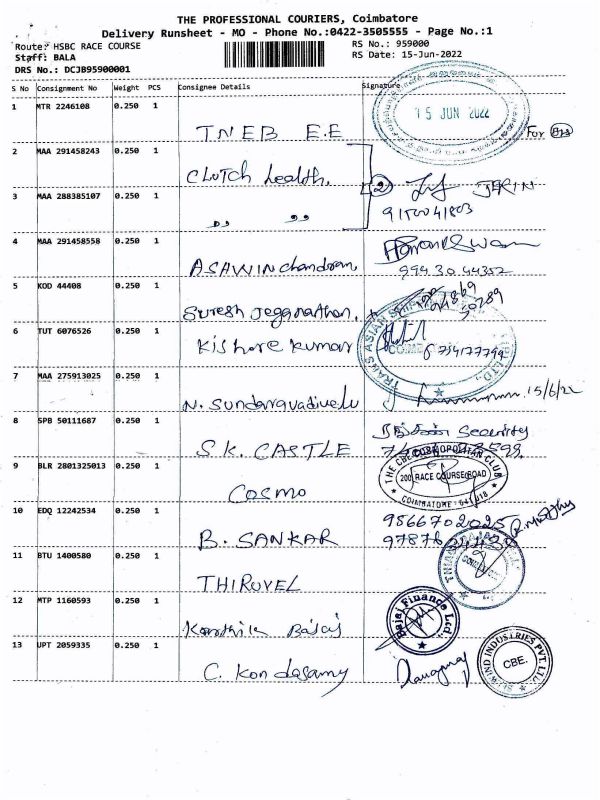 THE PROFESSIONAL COURIERS, Coimbatore
Delivery Runsheet - MO - Phone No.:0422-3505555 - Page No.:1
Route: HSBC RACE COURSE
RS No.: 959000
Staff: BALA
RS Date: 15-Jun-2022
DRS No.: DCJB95900001
S No Consignment No Weight PCS Consignee Details Signature
15 JUN 2022
1 MTR 2246108 0.250 1
TNEB E.E For
2 MAA 291458243 0.250 1
Clutch health.
3 MAA 288385107 0.250 1
,, ,,
2 JERIN
9150041803
4 MAA 291458558 0.250 1
ASAWIN chandran
99430 44352
5 KOD 44408 0.250 1
Suresh Jeganathan.
6 TUT 6076526 0.250 1
Kishore kumar
TRANS ASIAN
7 MAA 275913025 0.250 1
N. Sundaravadivelu 15/6/22
8 SPB 50111687 0.250 1
S.K. CASTLE
Security
9 BLR 2801325013 0.250 1
COSMO
THE CBE COSMOPOLITAN CLUB
200, RACE COURSE ROAD
COIMBATORE - 641 018
10 EDQ 12242534 0.250 1
B. SANKAR
9866702025
11 BTU 1400580 0.250 1
THIRUVEL
12 MTP 1160593 0.250 1
Karthik Bajaj
Bajaj Finance Ltd.
13 UPT 2059335 0.250 1
C. Kondasamy
WIND INDUSTRIES PVT. LTD.
CBE.